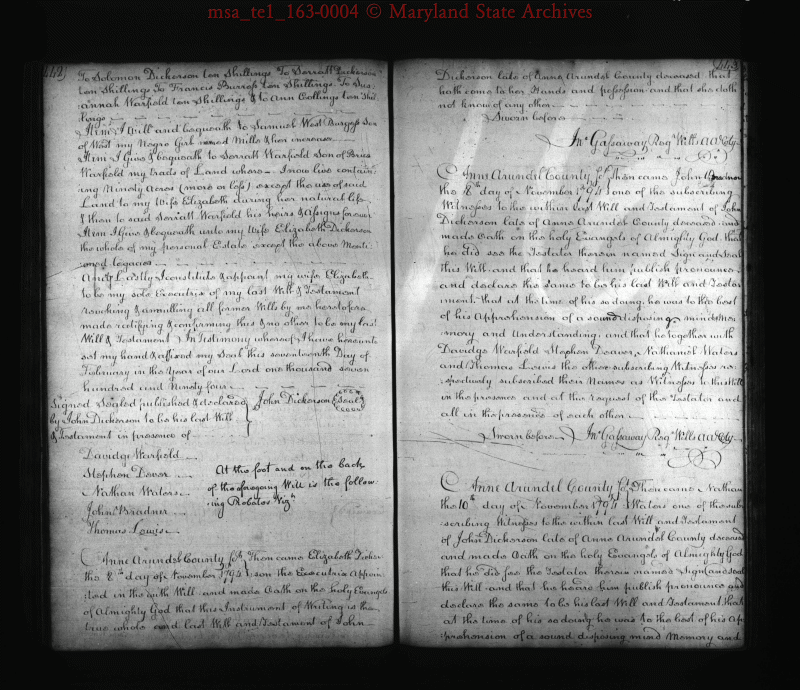 msa_te1_163-0004 © Maryland State Archives
442
To Solomon Dickerson ten Shillings To Sorratt Dickerson
ten Shillings To Francis Burross ten Shillings. To Sus
annah Warfield ten Shillings & to Ann Collings ten Shil
lings
Item I Will and bequeath to Samuel West Burgess Son
of West my Negro Girl named Milly & her increase
Item I Give & bequeath to Sorratt Warfield Son of Brice
Warfield my tract of Land whereon I now live contain
ing Ninety Acres (more or less) except the use of said
Land to my Wife Elizabeth during her natural life
& then to said Sorratt Warfield his heirs & assigns forever
Item I Give & bequeath unto my Wife Elizabeth Dickerson
the whole of my personal Estate except the above Menti
oned legacies
And Lastly I constitute & appoint my wife Elizabeth
to be my sole Executrix of my last Will & Testament
revoking & annulling all former Wills by me heretofore
made ratifying & confirming this & no other to be my last
Will & Testament In Testimony whereof I have hereunto
set my hand & affixed my Seal this seventeenth Day of
February in the Year of our Lord one thousand seven
hundred and Ninety four
Signed Sealed published & declared John Dickerson (Seal)
by John Dickerson to be his last Will
& Testament in presence of
Davidge Warfield
Stephen Deaver
Nathan Waters
John Bredner
Thomas Lewis
At the foot and on the back
of the aforegoing Will is the follow
ing Probates Vizt
Anne Arundel County Sct Then came Elizabeth Dicker
the 8th day of November 1794 son the Executrix Appoin
ted in the with Will and made Oath on the holy Evangels
of Almighty God that this Instrument of Writing is the
true whole and last Will and Testament of John
443
Dickerson late of Anne Arundel County deceased that
hath come to her Hands and possession and that she doth
not know of any other
Sworn before
Jno Gassaway Reg Wills AA Cty
Anne Arundel County Sct Then came John Bredner
the 8th day of November 1794 one of the subscribing
Witnesses to the within last Will and Testament of John
Dickerson late of Anne Arundel County deceased and
made Oath on the holy Evangels of Almighty God that
he did see the Testator therein named Sign and Seal
this Will and that he heard him publish pronounce
and declare the same to be his last Will and Testa
ment that at the time of his so doing he was to the best
of his Apprehension of a sound disposing mind Me
mory and Understanding and that he together with
Davidge Warfield Stephen Deaver Nathaniel Waters
and Thomas Lewis the other subscribing Witnesses re
spectively subscribed their Names as Witnesses to this Will
in the presence and at the request of the Testator and
all in the presence of each other
Sworn before Jno Gassaway Reg Wills AA Cty
Anne Arundel County Sct Then came Nathan
the 10th day of November 1794 Waters one of the sub
scribing Witness to the within last Will and Testament
of John Dickerson late of Anne Arundel County deceased
and made Oath on the holy Evangels of Almighty God
that he did see the Testator therein named Sign and seal
this Will and that he heard him publish pronounce and
declare the same to be his last Will and Testament that
at the time of his so doing he was to the best of his Ap
prehension of a sound disposing mind Memory and